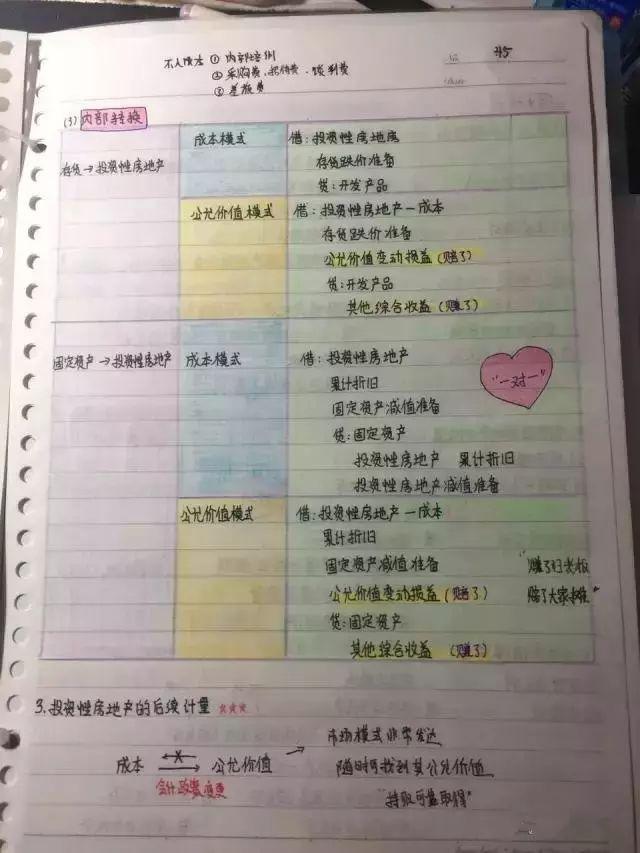 不入成本 ① 内部培训
② 采购费、招待费、谈判费
③ 差旅费
No.
Date
(3) 内部转换
存货→投资性房地产
成本模式
借:投资性房地房
存货跌价准备
贷:开发产品
公允价值模式
借:投资性房地产—成本
存货跌价准备
公允价值变动损益(赔了)
贷:开发产品
其他综合收益(赚了)
固定资产→投资性房地产
成本模式
借:投资性房地产
累计折旧
固定资产减值准备
贷:固定资产
投资性房地产 累计折旧
投资性房地产减值准备
"一对一"
公允价值模式
借:投资性房地产—成本
累计折旧
固定资产减值准备
公允价值变动损益(赔了)
贷:固定资产
其他综合收益 (赚了)
"赚了归老板
赔了大家摊"
3.投资性房地产的后续计量 ☆☆☆
成本 ⇄ 公允价值
会计政策变更
→ 市场模式非常发达
随时可找到其公允价值
"持股可靠取得"